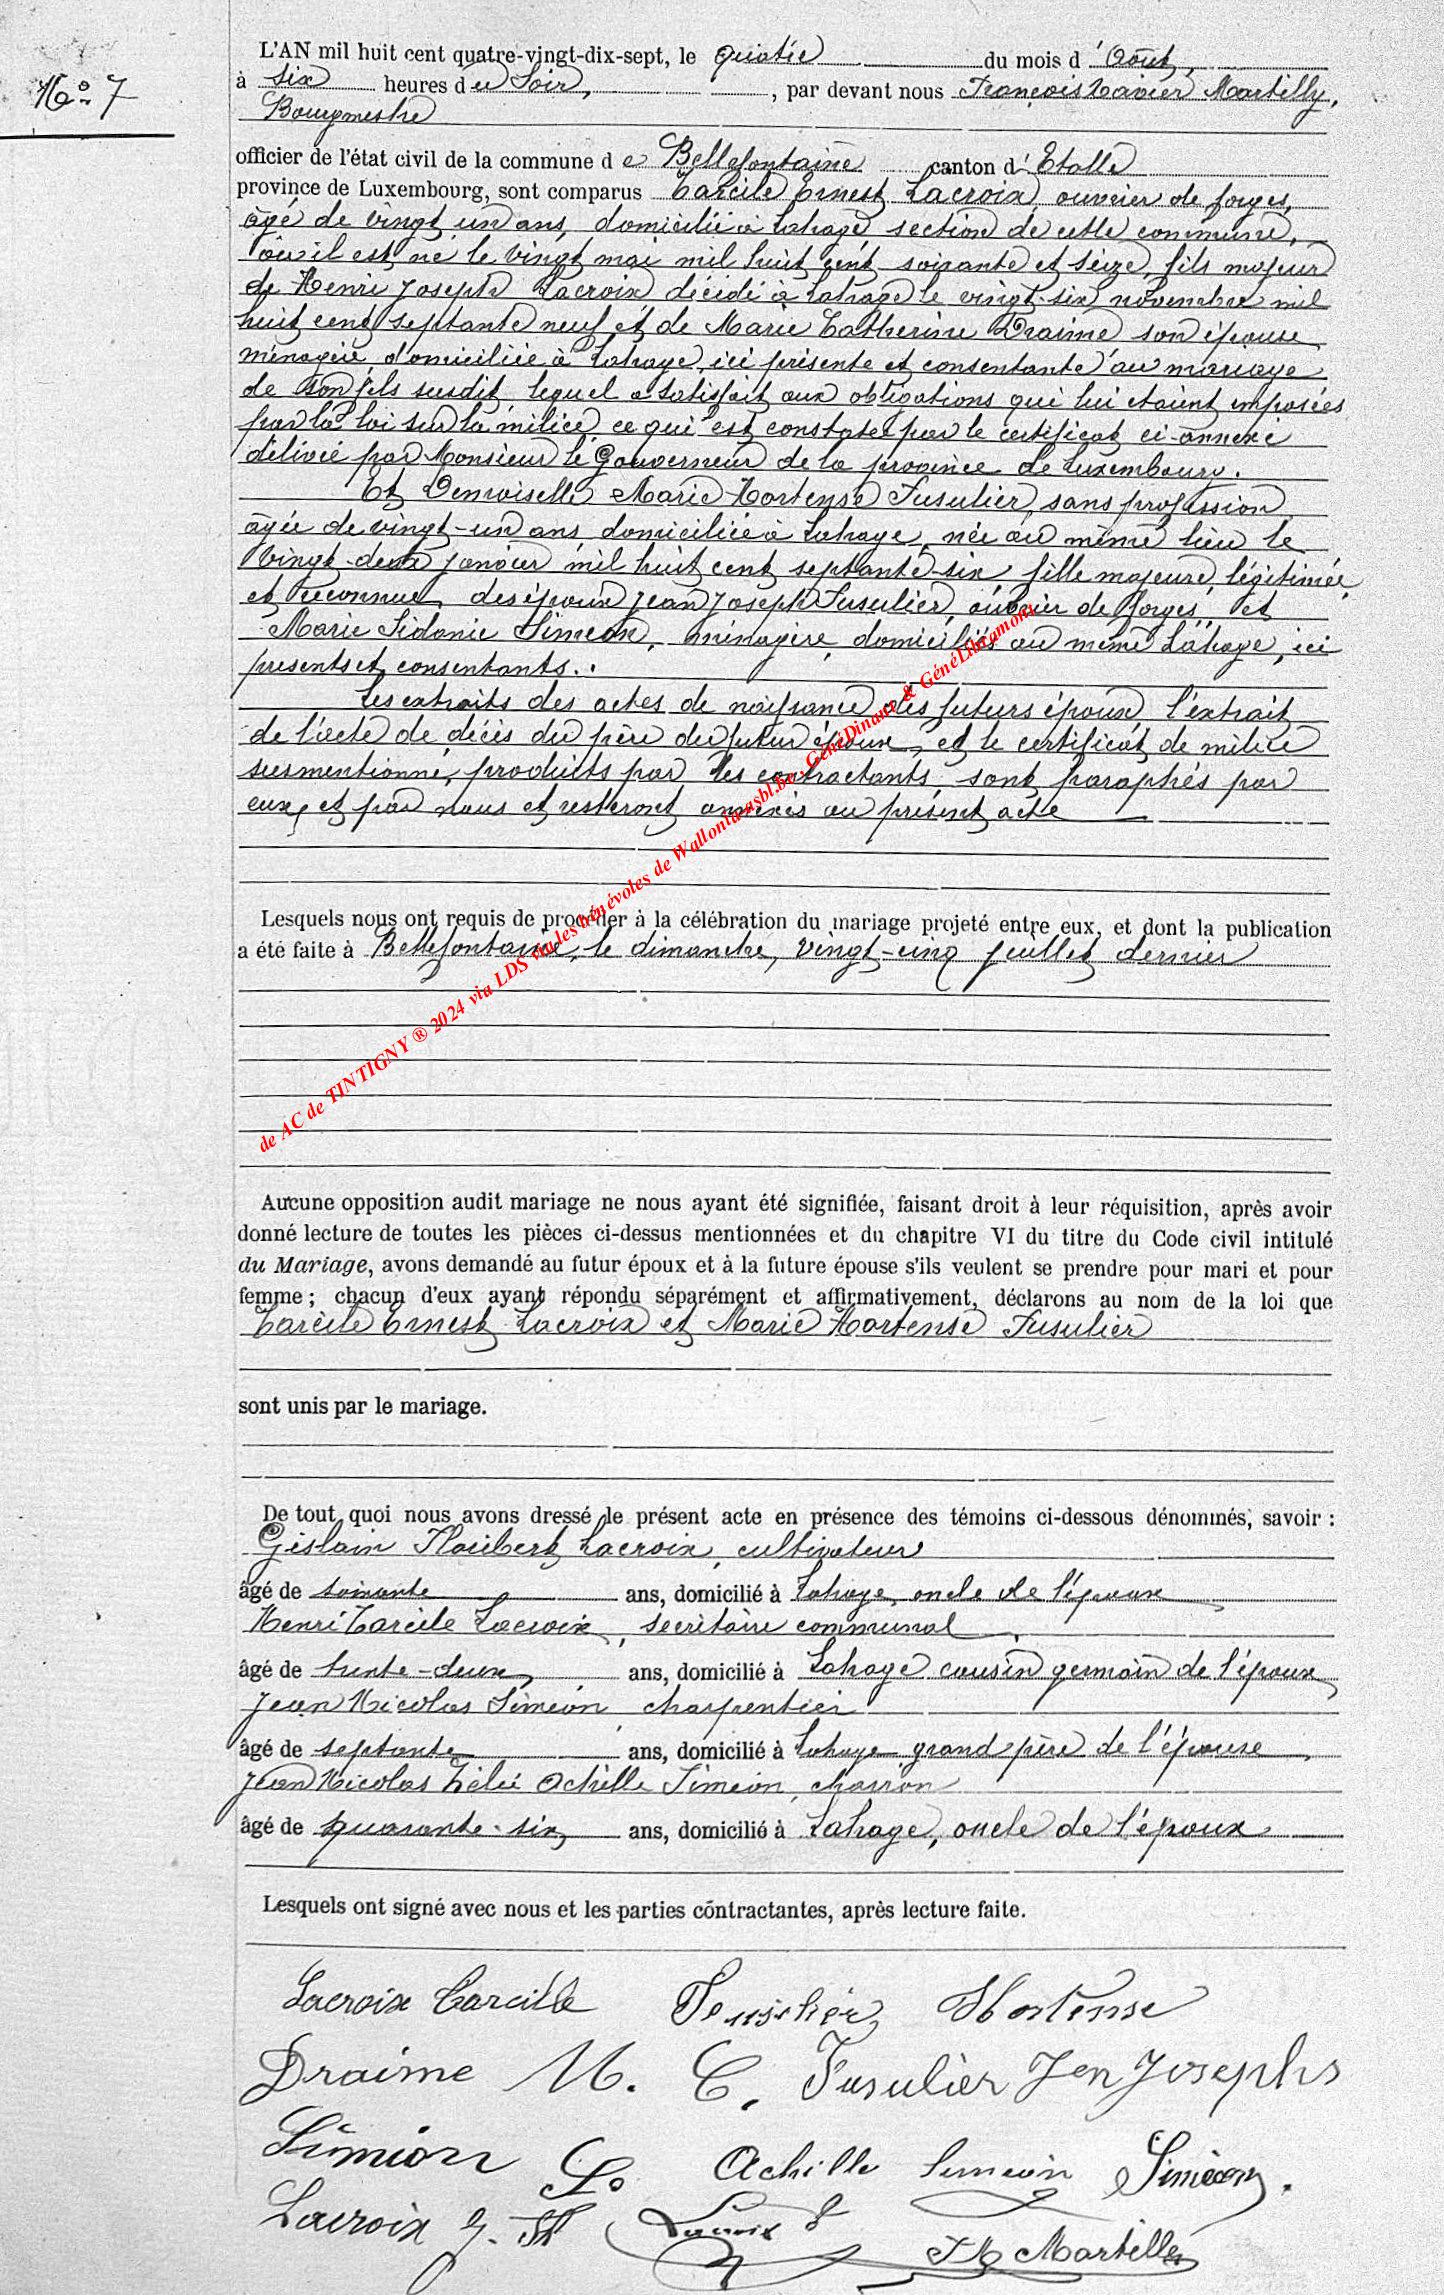 No 7
L'AN mil huit cent quatre-vingt-dix-sept, le quatre du mois d'Août,
à six heures du soir, , par devant nous François Xavier Martilly,
Bourgmestre
officier de l'état civil de la commune de Bellefontaine canton d'Etalle
province de Luxembourg, sont comparus Tarcile Ernest Lacroix ouvrier de forges,
âgé de vingt un ans, domicilié à Lahage section de cette commune,
où il est né le vingt mai mil huit cent soixante et seize, fils majeur
de Henri Joseph Lacroix décédé à Lahage le vingt-six novembre mil
huit cent septante neuf et de Marie Catherine Draime son épouse
ménagère, domiciliée à Lahage, ici présente et consentante au mariage
de son fils susdit, lequel a satisfait aux obligations qui lui étaient imposées
par la loi sur la milice ce qui est constaté par le certificat ci-annexé
délivré par Monsieur le Gouverneur de la province de Luxembourg.
Et Demoiselle Marie Hortense Fusulier, sans profession
âgée de vingt-un ans domiciliée à Lahage, née au même lieu le
vingt-deux janvier mil huit cent septante-six fille majeure, légitimée
et reconnue, des époux Jean Joseph Fusulier, ouvrier de forges, et
Marie Sidonie Simeon, ménagère, domiciliés au même Lahage, ici
présents et consentants.
Les extraits des actes de naissance des futurs époux, l'extrait
de l'acte de décès du père du futur époux, et le certificat de milice
susmentionné, produits par les contractants sont paraphés par
eux, et par nous et resteront annexés au présent acte
Lesquels nous ont requis de procéder à la célébration du mariage projeté entre eux, et dont la publication
a été faite à Bellefontaine, le dimanche, vingt-cinq juillet dernier
de AC de TINTIGNY ® 2024 via LDS via les bénévoles de Wallonia-asbl.be, GénéDinant & GénéLibramont
Aucune opposition audit mariage ne nous ayant été signifiée, faisant droit à leur réquisition, après avoir
donné lecture de toutes les pièces ci-dessus mentionnées et du chapitre VI du titre du Code civil intitulé
du Mariage, avons demandé au futur époux et à la future épouse s'ils veulent se prendre pour mari et pour
femme ; chacun d'eux ayant répondu séparément et affirmativement, déclarons au nom de la loi que
Tarcile Ernest Lacroix et Marie Hortense Fusulier
sont unis par le mariage.
De tout quoi nous avons dressé le présent acte en présence des témoins ci-dessous dénommés, savoir :
Gislain Haubert Lacroix, cultivateur
âgé de soixante ans, domicilié à Lahage, oncle de l'époux
Henri Tarcile Lacroix, secrétaire communal
âgé de trente-deux ans, domicilié à Lahage cousin germain de l'époux
Jean Nicolas Simeon, charpentier
âgé de septante ans, domicilié à Lahage grand père de l'épouse
Jean Nicolas Achille Simeon, charron
âgé de quarante-six ans, domicilié à Lahage, oncle de l'époux
Lesquels ont signé avec nous et les parties contractantes, après lecture faite.
Lacroix Tarcille Hortense
Draime M. C. Fusulier Jen Josephs
Siméon S. Achille Simeon Siméon.
Lacroix Lacroix Martilly